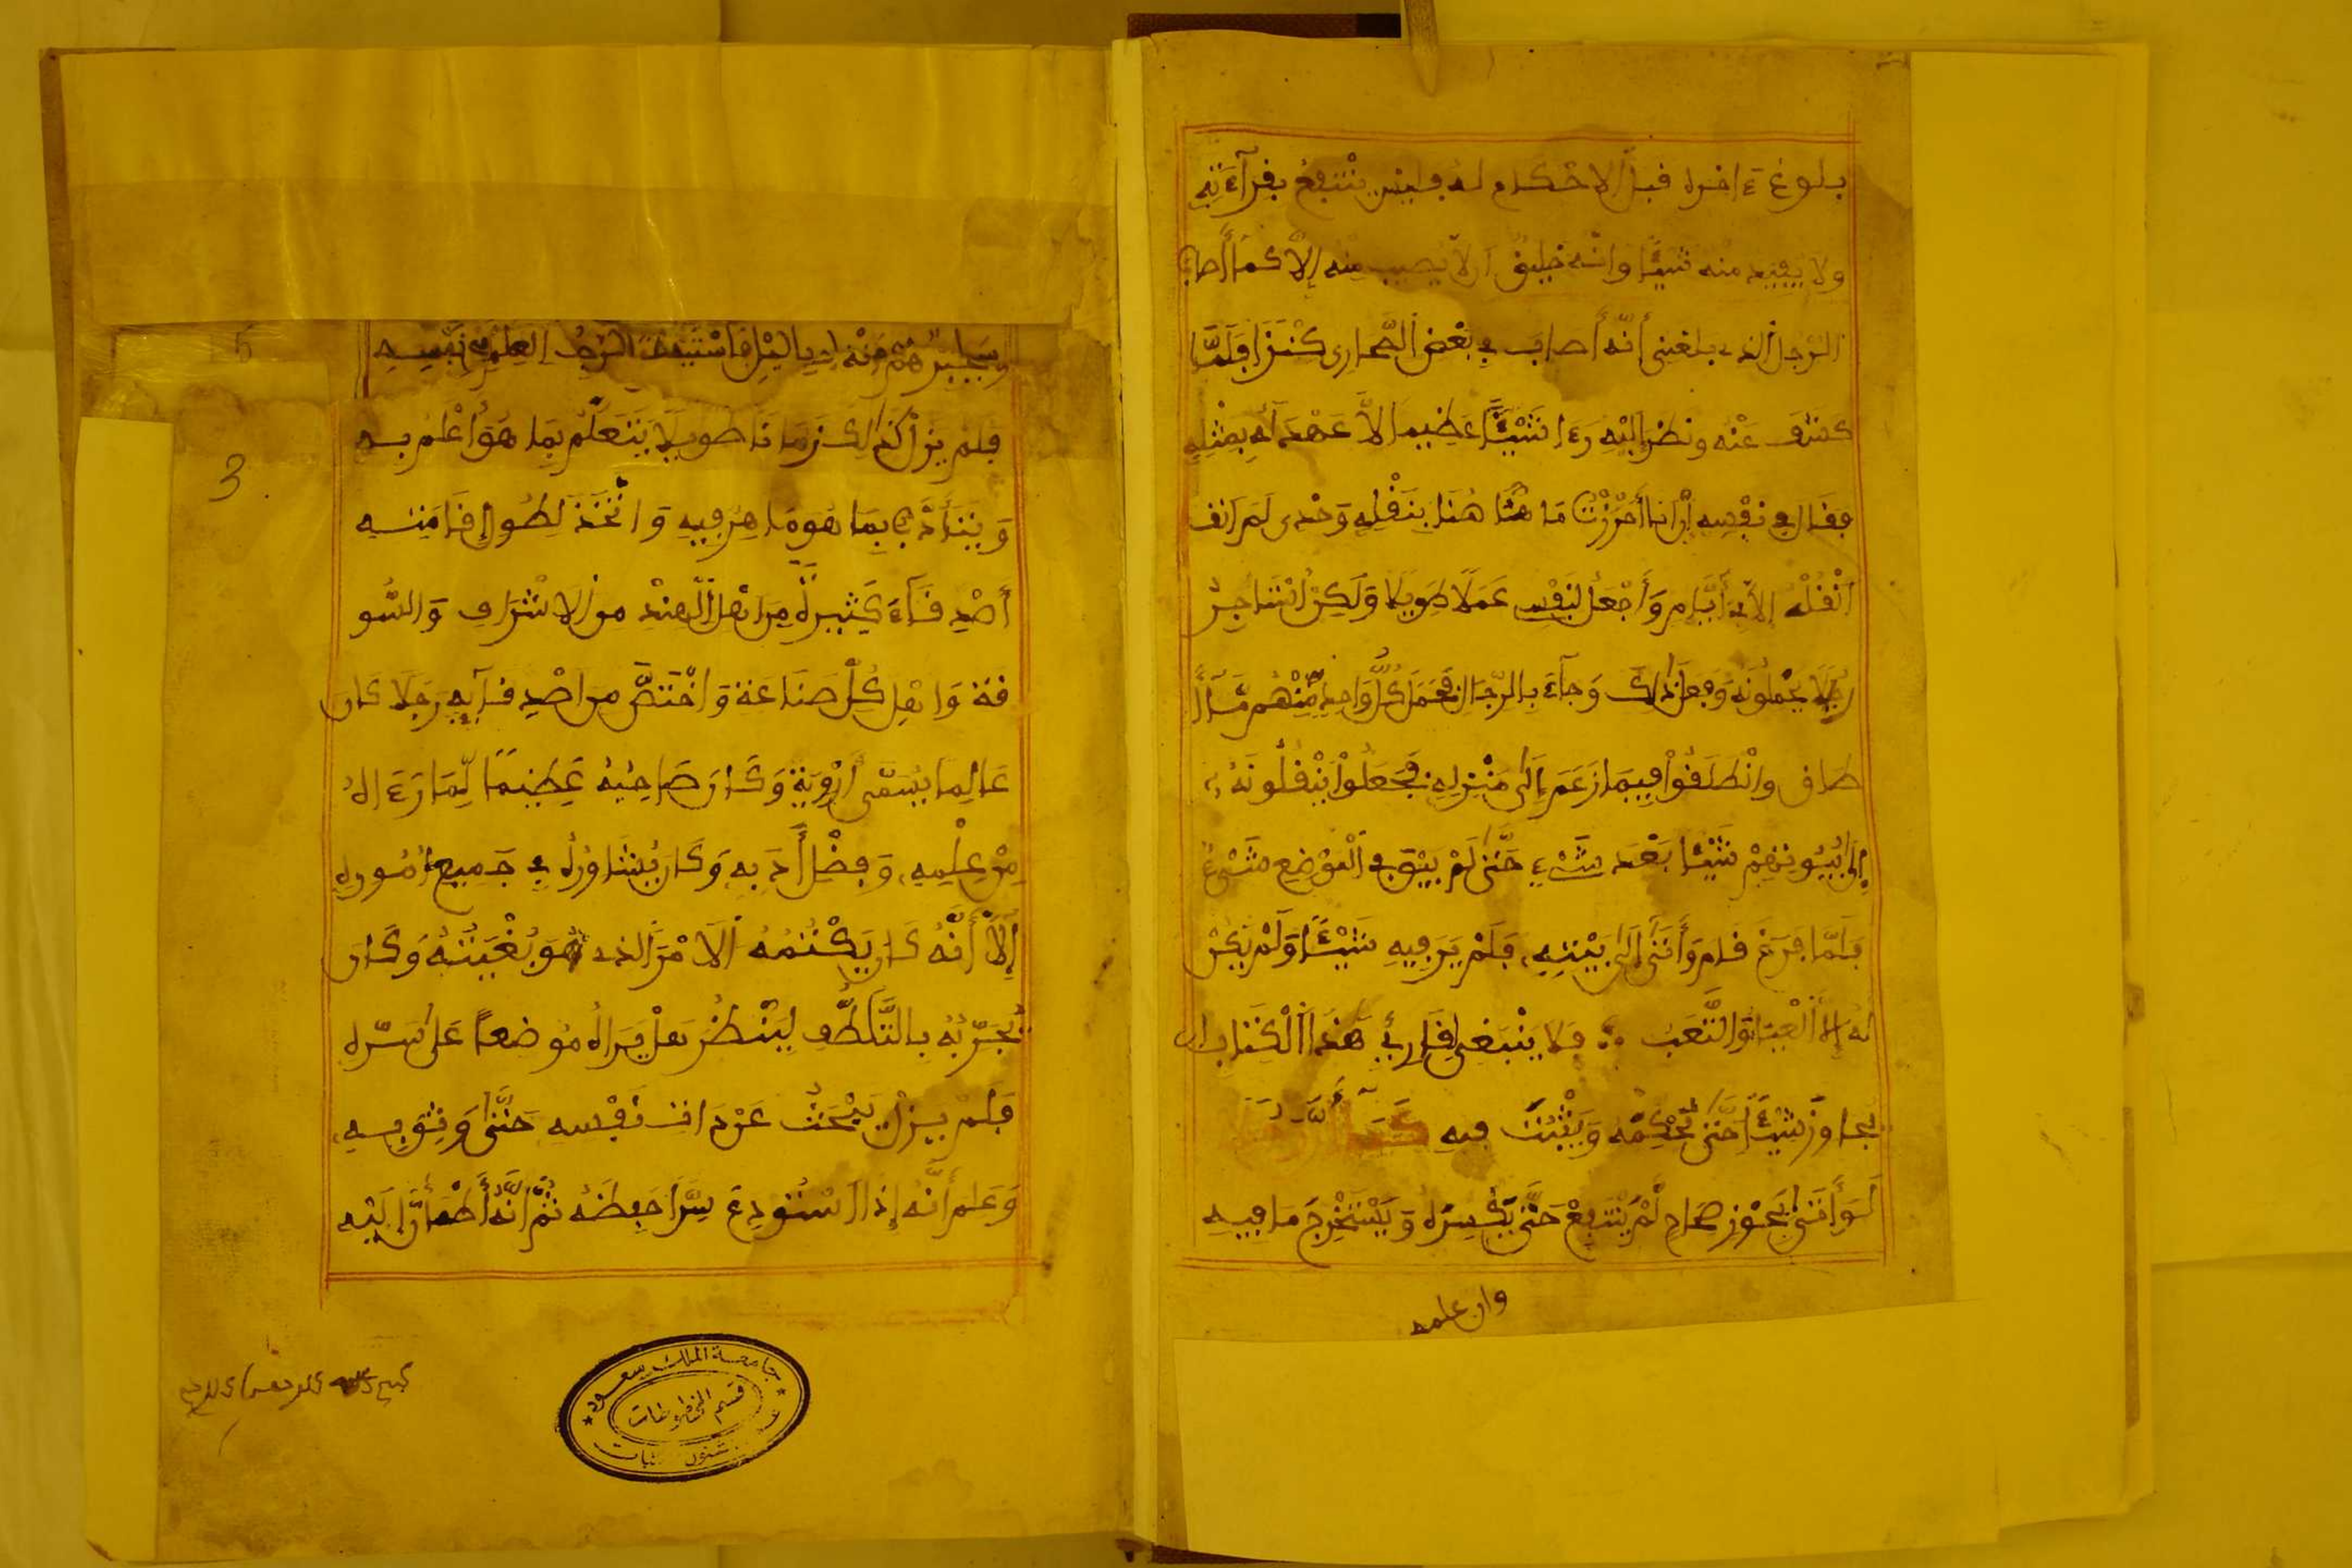 بلوغ ءاخره قبل الاحكام له فليس ينتفع بقرآءته
ولا يفيد منه شيئا وانه خليق الا يصيب منه إلا كما أصاب
الرجل الذي بلغني أنه أصاب في بعض الصحارى كنزا فلما
كشف عنه ونظر إليه رءا شيئا عظيما لا عهد له بمثله
فقال في نفسه إن انا أحرزت ما هنا بنقله وحدى لم
انقله إلا في أيام وأجعل لنفسي عملا طويلا ولكن استاجر
رجالا يحملونه ففعل ذلك وجآء بالرجال فحمل كل واحد منهم ما
طاق وانطلقوا فيما زعم إلى منزله فجعلوا ينقلونه
إلى بيوتهم شيئا بعد شيء حتى لم يبق في الموضع شيء
فلما فرغ قام وأتى إلى بيته فلم ير فيه شيئا ولم يكن
له إلا العنا والتعب فلا ينبغي لقارئ هذا الكتاب ان
يجاوز شيئا حتى يحكمه ويثبت فيه
لو أتى بجوز صحاح لم ينتفع حتى يكسره ويستخرج ما فيه
وان علمه
5
3
فلم يزل كذلك زمانا طويلا يتعلم بما هو أعلم به
ويتأدب بما هو ماهر فيه واتخذ لطول إقامته
أصدقآء كثيرة من اهل الهند من الاشراف والسو
قة واهل كل صناعة واختص من اصدقآئه رجلا كان
عالما يسمى أزوية وكان صاحبه عظيما لما رءا له
من علمه وفضل أدبه وكان يشاوره في جميع أموره
إلا أنه كان يكتمه الامر الذي هو بغيته وكان
يجربه بالتلطف لينظر هل يراه موضعا على سره
فلم يزل يبحث عن ذات نفسه حتى وثق به
وعلم أنه إذا استودع سرا حفظه ثم انه أطمأن إليه
جامعة الملك سعود
قسم المخطوطات